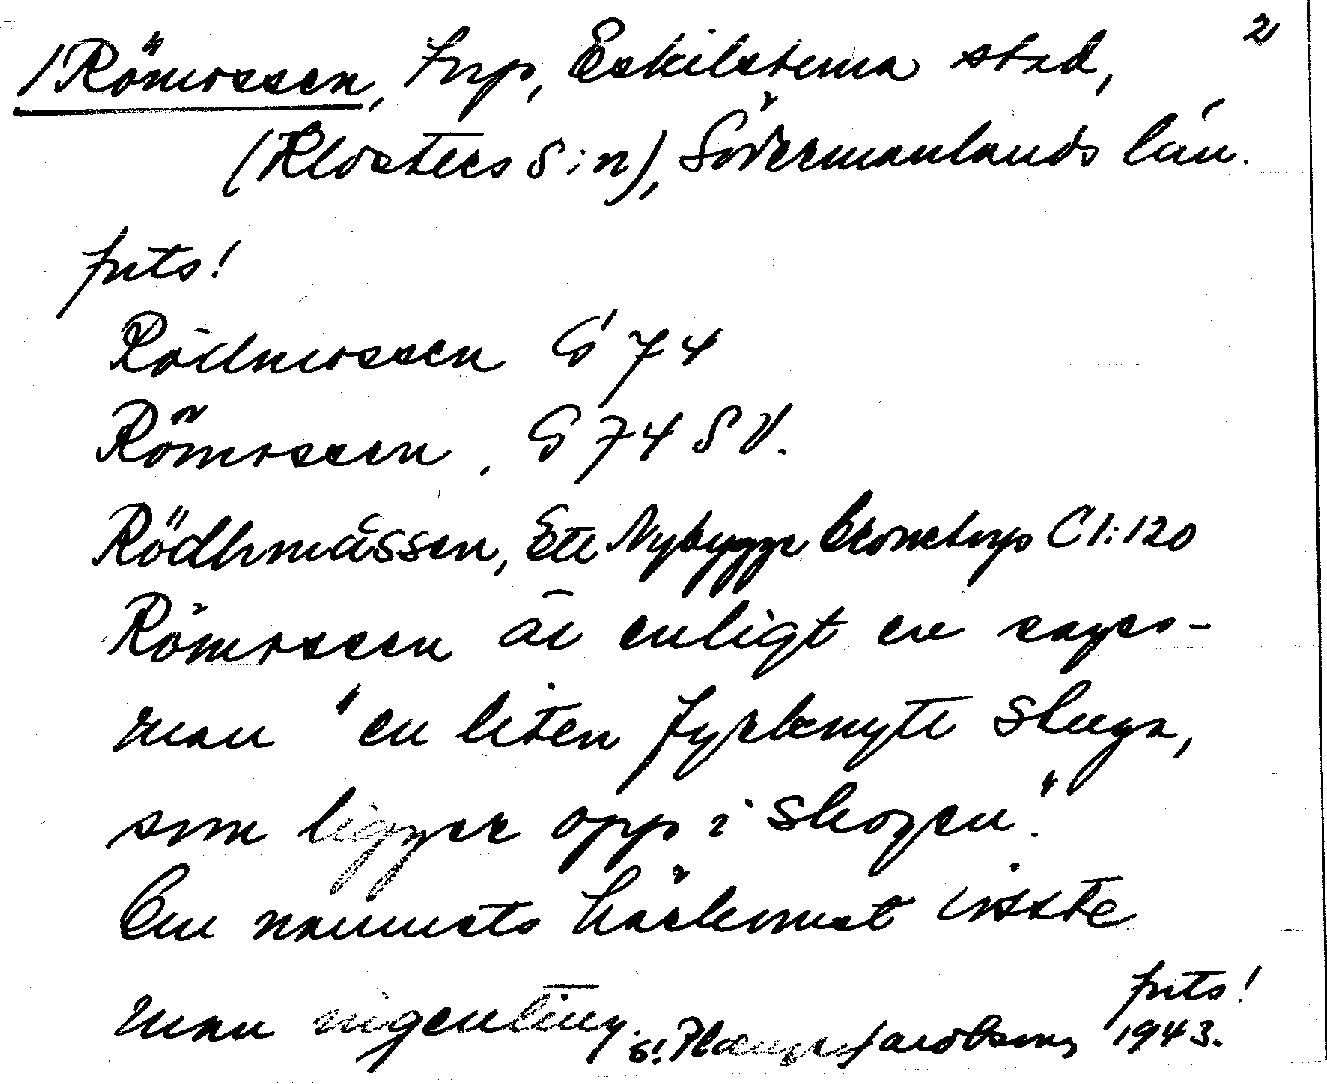 2
/Römossen, torp, Eskilstuna stad,
(Klosters S:n), Södermanlands län.
forts!
Rödmossen G 74
Römossen, G 74 SV.
Rödhmåssen, Ett Nybygge Cronetorp C1:120
Römossen är enligt en sages-
man "en liten fyrknyte stuga,
som ligger opp i skogen".
Om namnets härkomst visste
man ingenting.
forts!
Jacobsson, 1943.